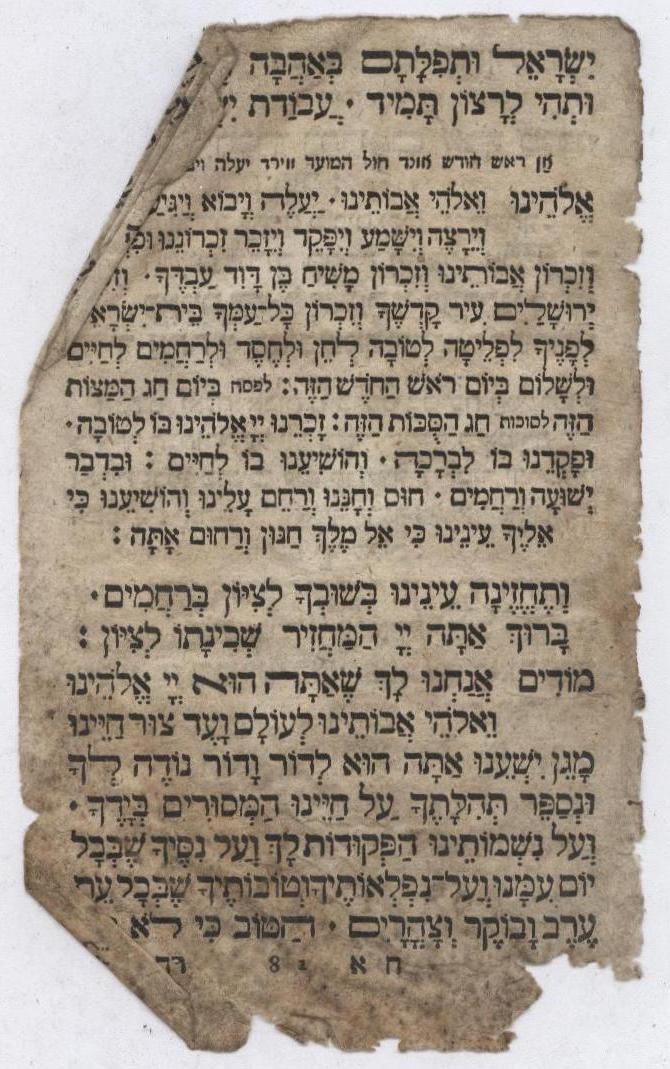 יִשְׂרָאֵל וּתְפִלָּתָם בְּאַהֲבָה
וּתְהִי לְרָצוֹן תָּמִיד · עֲבוֹדַת
אן ראש חודש אונד חול המועד ווירד יעלה
אֱלֹהֵינוּ וֵאלֹהֵי אֲבוֹתֵינוּ · יַעֲלֶה וְיָבוֹא וְיַגִּיעַ
וְיֵרָצֶה וְיִשָּׁמַע וְיִפָּקֵד וְיִזָּכֵר זִכְרוֹנֵנוּ
וְזִכְרוֹן אֲבוֹתֵינוּ וְזִכְרוֹן מָשִׁיחַ בֶּן דָּוִד עַבְדֶּךָ ·
יְרוּשָׁלַיִם עִיר קָדְשֶׁךָ וְזִכְרוֹן כָּל־עַמְּךָ בֵּית־יִשְׂרָאֵ
לְפָנֶיךָ לִפְלֵיטָה לְטוֹבָה לְחֵן וּלְחֶסֶד וּלְרַחֲמִים לְחַיִּים
וּלְשָׁלוֹם בְּיוֹם רֹאשׁ הַחֹדֶשׁ הַזֶּה : לפסח בְּיוֹם חַג הַמַּצּוֹת
הַזֶּה לסוכות חַג הַסֻּכּוֹת הַזֶּה : זָכְרֵנוּ יְיָ אֱלֹהֵינוּ בּוֹ לְטוֹבָה ·
וּפָקְדֵנוּ בוֹ לִבְרָכָה · וְהוֹשִׁיעֵנוּ בוֹ לְחַיִּים : וּבִדְבַר
יְשׁוּעָה וְרַחֲמִים · חוּס וְחָנֵּנוּ וְרַחֵם עָלֵינוּ וְהוֹשִׁיעֵנוּ כִּי
אֵלֶיךָ עֵינֵינוּ כִּי אֵל מֶלֶךְ חַנּוּן וְרַחוּם אָתָּה :
וְתֶחֱזֶינָה עֵינֵינוּ בְּשׁוּבְךָ לְצִיּוֹן בְּרַחֲמִים ·
בָּרוּךְ אַתָּה יְיָ הַמַּחֲזִיר שְׁכִינָתוֹ לְצִיּוֹן :
מוֹדִים אֲנַחְנוּ לָךְ שֶׁאַתָּה הוּא יְיָ אֱלֹהֵינוּ
וֵאלֹהֵי אֲבוֹתֵינוּ לְעוֹלָם וָעֶד צוּר חַיֵּינוּ
מָגֵן יִשְׁעֵנוּ אַתָּה הוּא לְדוֹר וָדוֹר נוֹדֶה לְּךָ
וּנְסַפֵּר תְּהִלָּתֶךָ עַל חַיֵּינוּ הַמְּסוּרִים בְּיָדֶךָ ·
וְעַל נִשְׁמוֹתֵינוּ הַפְּקוּדוֹת לָךְ וְעַל נִסֶּיךָ שֶׁבְּכָל
יוֹם עִמָּנוּ וְעַל־נִפְלְאוֹתֶיךָ וְטוֹבוֹתֶיךָ שֶׁבְּכָל
עֶרֶב וָבוֹקֶר וְצָהֳרָיִם · הַטּוֹב כִּי לֹא
ח א 8 2 רך